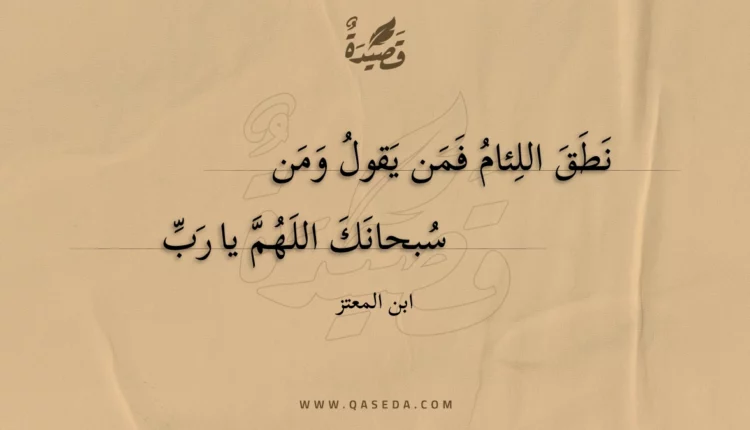 قَصِيدَةٌ
نَطَقَ اللِئامُ فَمَن يَقولُ وَمَن
سُبحانَكَ اللَهُمَّ يا رَبِّ
ابن المعتز
WWW.QASEDA.COM